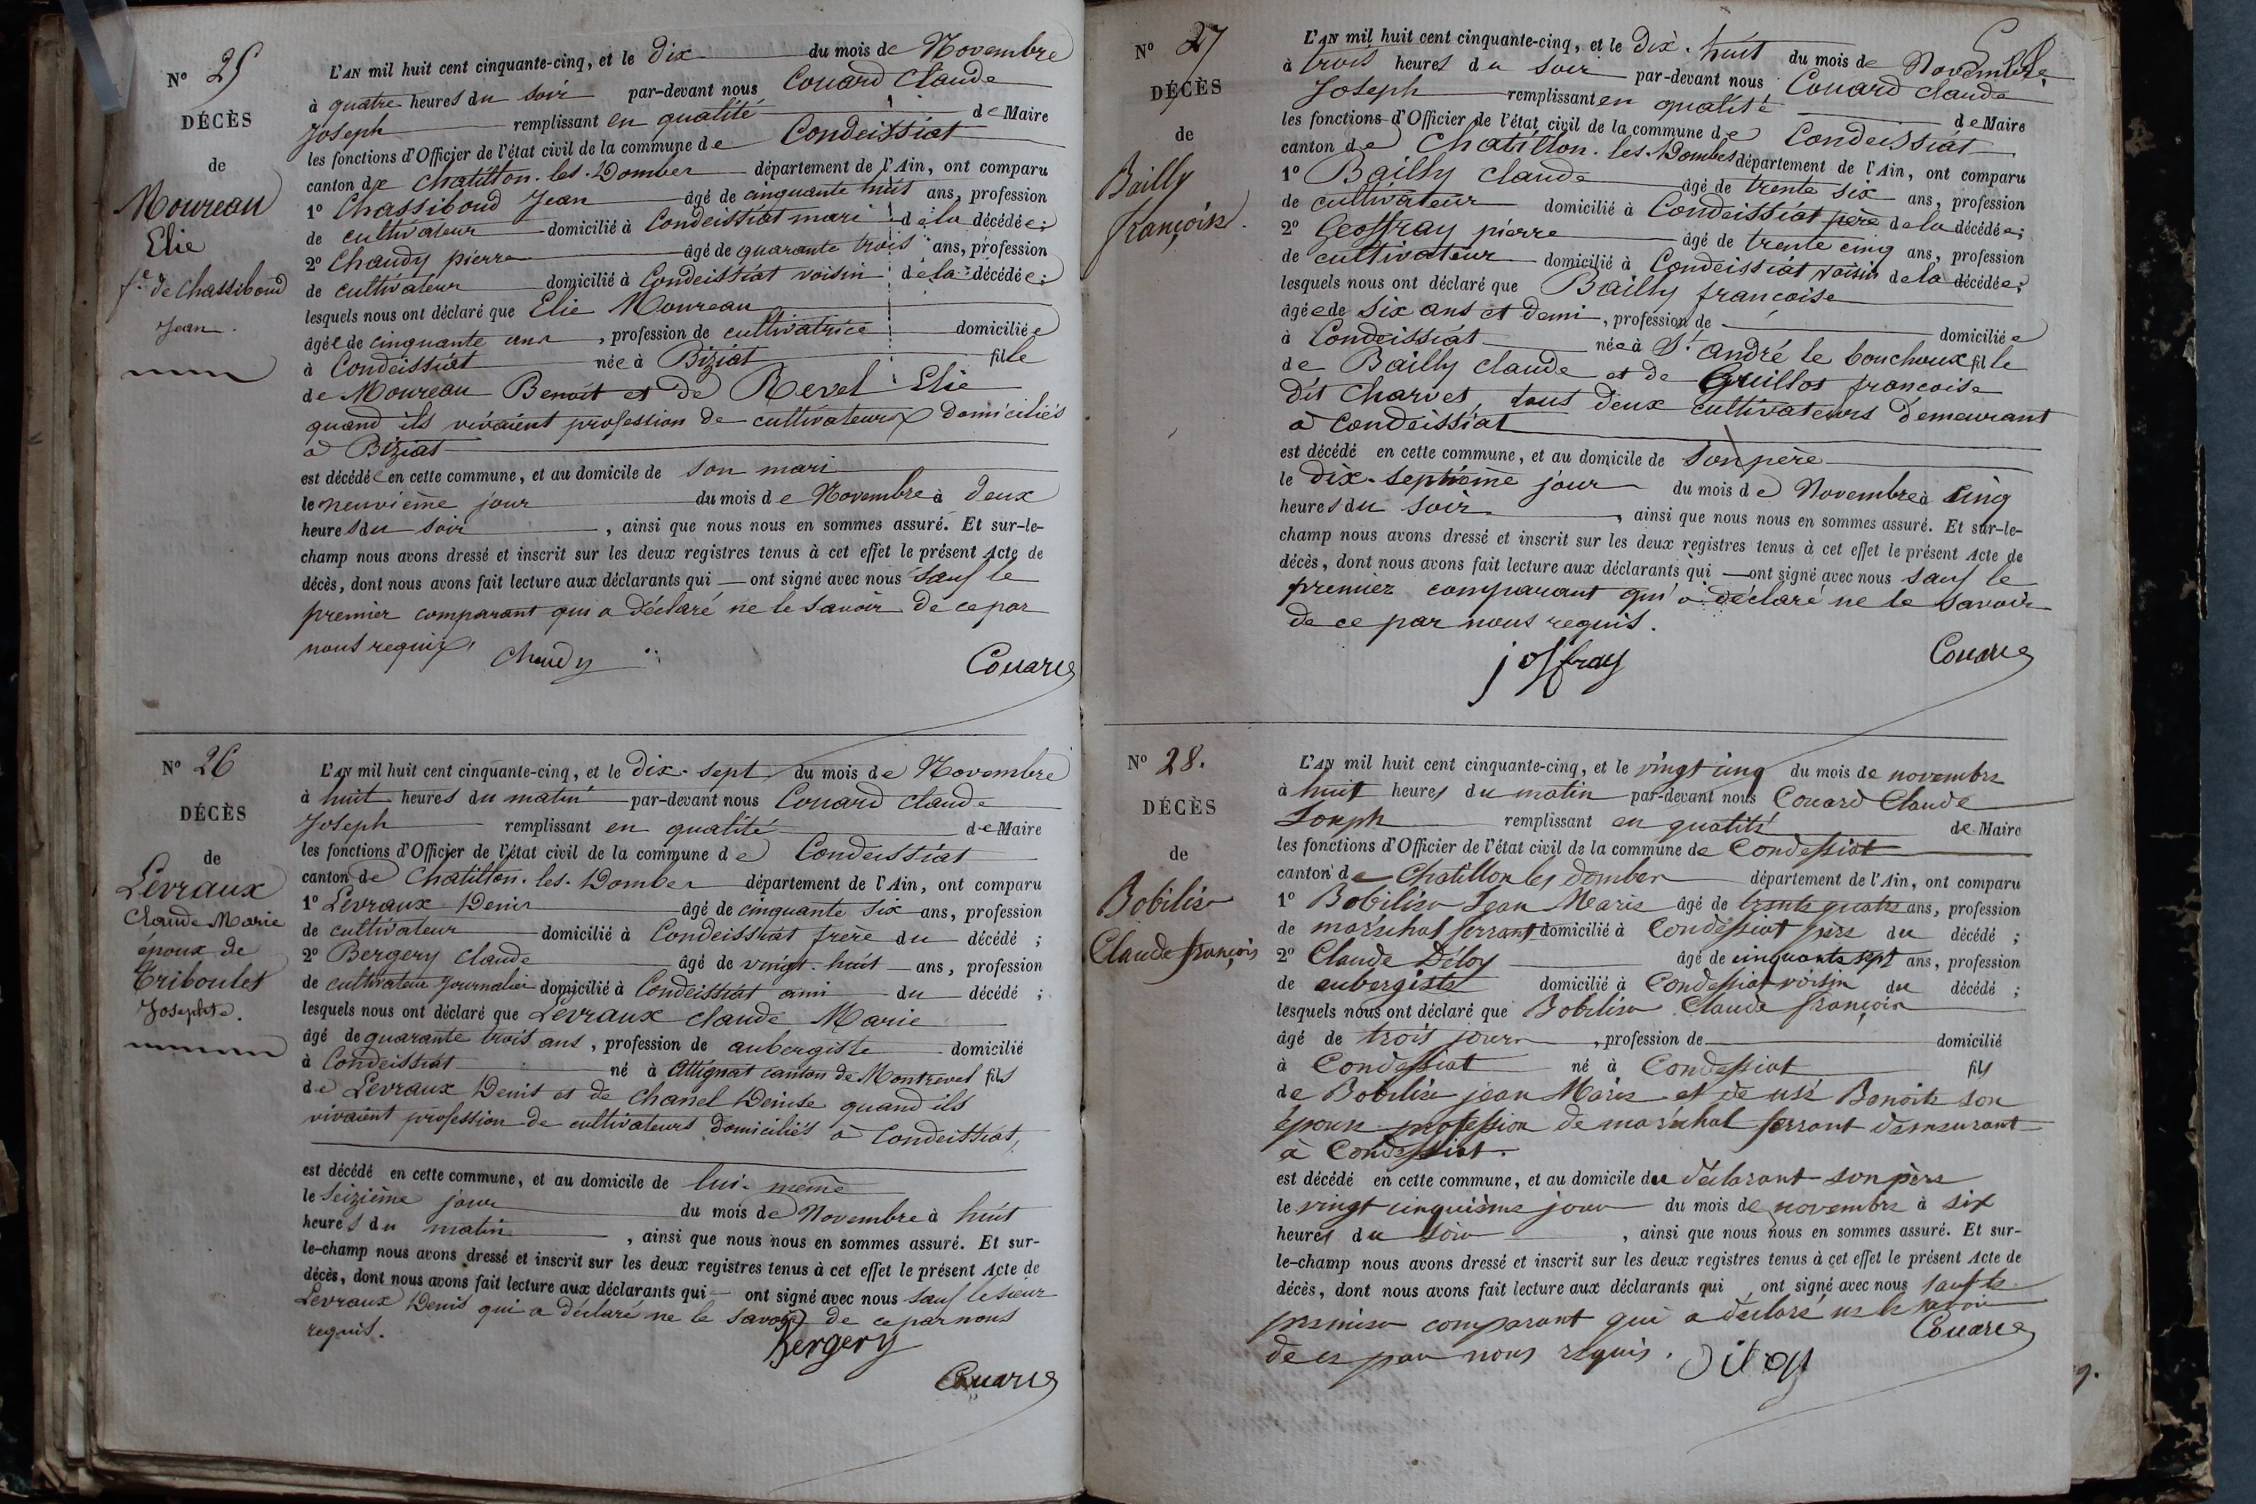 N° 25
DÉCÈS
de
Moureau
Elie
fe de Chassiboud
Jean.
L'AN mil huit cent cinquante-cinq, et le dix du mois de Novembre
à quatre heures du soir par-devant nous Couard Claude
Joseph remplissant en qualité de Maire
les fonctions d'Officier de l'état civil de la commune de Condeissiat
canton de Chatillon-les-Dombes département de l'Ain, ont comparu
1° Chassiboud Jean âgé de cinquante huit ans, profession
de cultivateur domicilié à Condeissiat mari de la décédée;
2° Chaudy pierre âgé de quarante trois ans, profession
de cultivateur domicilié à Condeissiat voisin de la décédée;
lesquels nous ont déclaré que Elie Moureau
âgée de cinquante ans, profession de cultivatrice domiciliée
à Condeissiat née à Biziat fille
de Moureau Benoit et de Revel Elie
quand ils vivaient profession de cultivateurs domiciliés
à Biziat
est décédée en cette commune, et au domicile de son mari
le neuvième jour du mois de Novembre à deux
heures du soir, ainsi que nous nous en sommes assuré. Et sur-le-
champ nous avons dressé et inscrit sur les deux registres tenus à cet effet le présent Acte de
décès, dont nous avons fait lecture aux déclarants qui — ont signé avec nous sauf le
premier comparant qui a déclaré ne le savoir de ce par
nous requis,
Chaudy Couard
N° 26
DÉCÈS
de
Levraux
Claude Marie
époux de
Triboulet
Josephte.
L'AN mil huit cent cinquante-cinq, et le dix-sept du mois de Novembre
à huit heures du matin par-devant nous Couard Claude
Joseph remplissant en qualité de Maire
les fonctions d'Officier de l'état civil de la commune de Condeissiat
canton de Chatillon-les-Dombes département de l'Ain, ont comparu
1° Levraux Denis âgé de cinquante six ans, profession
de cultivateur domicilié à Condeissiat frère du décédé;
2° Bergery Claude âgé de vingt-huit ans, profession
de cultivateur journalier domicilié à Condeissiat ami du décédé;
lesquels nous ont déclaré que Levraux Claude Marie
âgé de quarante trois ans, profession de aubergiste domicilié
à Condeissiat né à Attignat canton de Montrevel fils
de Levraux Denis et de Chanel Denise quand ils
vivaient profession de cultivateurs domiciliés à Condeissiat,
est décédé en cette commune, et au domicile de lui-même
le seizième jour du mois de Novembre à huit
heures du matin, ainsi que nous nous en sommes assuré. Et sur-
le-champ nous avons dressé et inscrit sur les deux registres tenus à cet effet le présent Acte de
décès, dont nous avons fait lecture aux déclarants qui — ont signé avec nous sauf le sieur
Levraux Denis qui a déclaré ne le savoir de ce par nous
requis.
Bergery
Couard
N° 27
DÉCÈS
de
Bailly
françoise.
L'AN mil huit cent cinquante-cinq, et le dix-huit du mois de Novembre
à trois heures du soir par-devant nous Couard Claude
Joseph remplissant en qualité de Maire
les fonctions d'Officier de l'état civil de la commune de Condeissiat
canton de Chatillon-les-Dombes département de l'Ain, ont comparu
1° Bailly Claude âgé de trente six ans, profession
de cultivateur domicilié à Condeissiat père de la décédée;
2° Geoffray pierre âgé de trente cinq ans, profession
de cultivateur domicilié à Condeissiat voisin de la décédée;
lesquels nous ont déclaré que Bailly françoise
âgée de six ans et demi, profession de domiciliée
à Condeissiat née à St andré le bouchoux fille
de Bailly Claude et de Guillot françoise
dit Charvet, tous deux cultivateurs demeurant
à Condeissiat
est décédé en cette commune, et au domicile de son père
le dix-septième jour du mois de Novembre à cinq
heures du soir, ainsi que nous nous en sommes assuré. Et sur-le-
champ nous avons dressé et inscrit sur les deux registres tenus à cet effet le présent Acte de
décès, dont nous avons fait lecture aux déclarants qui — ont signé avec nous sauf le
premier comparant qui a déclaré ne le savoir
de ce par nous requis.
joffray Couard
N° 28.
DÉCÈS
de
Bobilier
Claude françois
L'AN mil huit cent cinquante-cinq, et le vingt cinq du mois de novembre
à huit heures du matin par-devant nous Couard Claude
Joseph remplissant en qualité de Maire
les fonctions d'Officier de l'état civil de la commune de Condessiat
canton de Chatillon les dombes département de l'Ain, ont comparu
1° Bobilier Jean Marie âgé de trente quatre ans, profession
de maréchal ferrant domicilié à Condessiat père du décédé;
2° Claude Diloy âgé de cinquante sept ans, profession
de aubergiste domicilié à Condessiat voisin du décédé;
lesquels nous ont déclaré que Bobilier Claude françois
âgé de trois jours, profession de domicilié
à Condessiat né à Condessiat fils
de Bobilier jean Marie et de Benoite son
épouse profession de maréchal ferrant demeurant
à Condessiat.
est décédé en cette commune, et au domicile du déclarant son père
le vingt cinquième jour du mois de novembre à six
heures du soir, ainsi que nous nous en sommes assuré. Et sur-
le-champ nous avons dressé et inscrit sur les deux registres tenus à cet effet le présent Acte de
décès, dont nous avons fait lecture aux déclarants qui ont signé avec nous sauf le
premier comparant qui a déclaré ne le savoir
de ce par nous requis. Couard
Diloy
9.